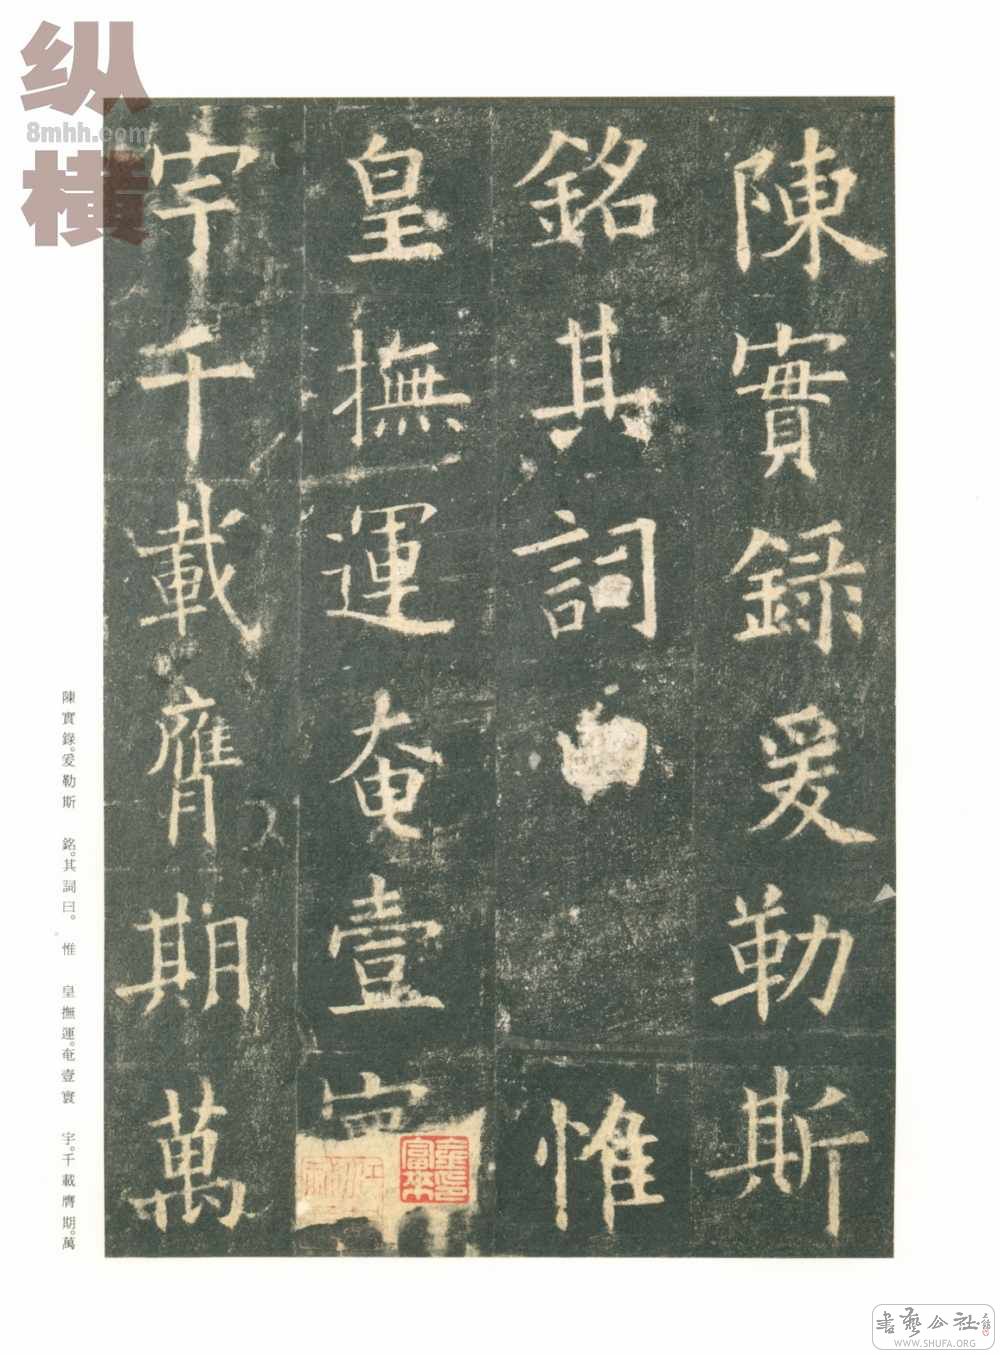 陳實錄爰勒斯
銘其詞 惟
皇撫運奄壹寰
宇千載膺期萬
陳實錄。爰勒斯 銘。其詞曰。 惟 皇撫運。奄壹寰 宇。千載膺期。萬
纵横
8mhh.com
書藝公社
WWW.SHUFA.ORG